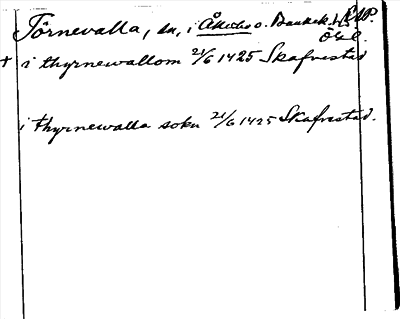 Törnevalla, sn, i Åkerbo o. Bankek. hd
Ögl.
+ i thyrnewallom 21/6 1425 Skafvestad
i thyrnewalla sokn 21/6 1425 Skafvestad.